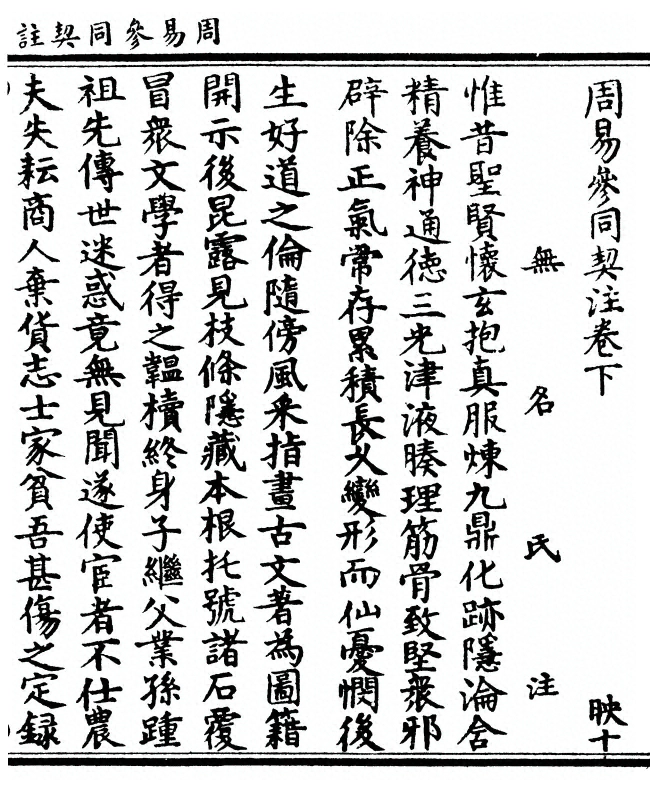 周易參同契註
周易參同契注卷下 映十
無名氏注
惟昔聖賢懷玄抱真服煉九鼎化跡隱淪含
精養神通德三光津液腠理筋骨致堅衆邪
辟除正氣常存累積長久變形而仙憂憫後
生好道之倫隨傍風采指畫古文著為圖籍
開示後昆露見枝條隱藏本根托號諸石覆
冒衆文學者得之韞櫝終身子繼父業孫踵
祖先傳世迷惑竟無見聞遂使宦者不仕農
夫失耘商人棄貨志士家貧吾甚傷之定録